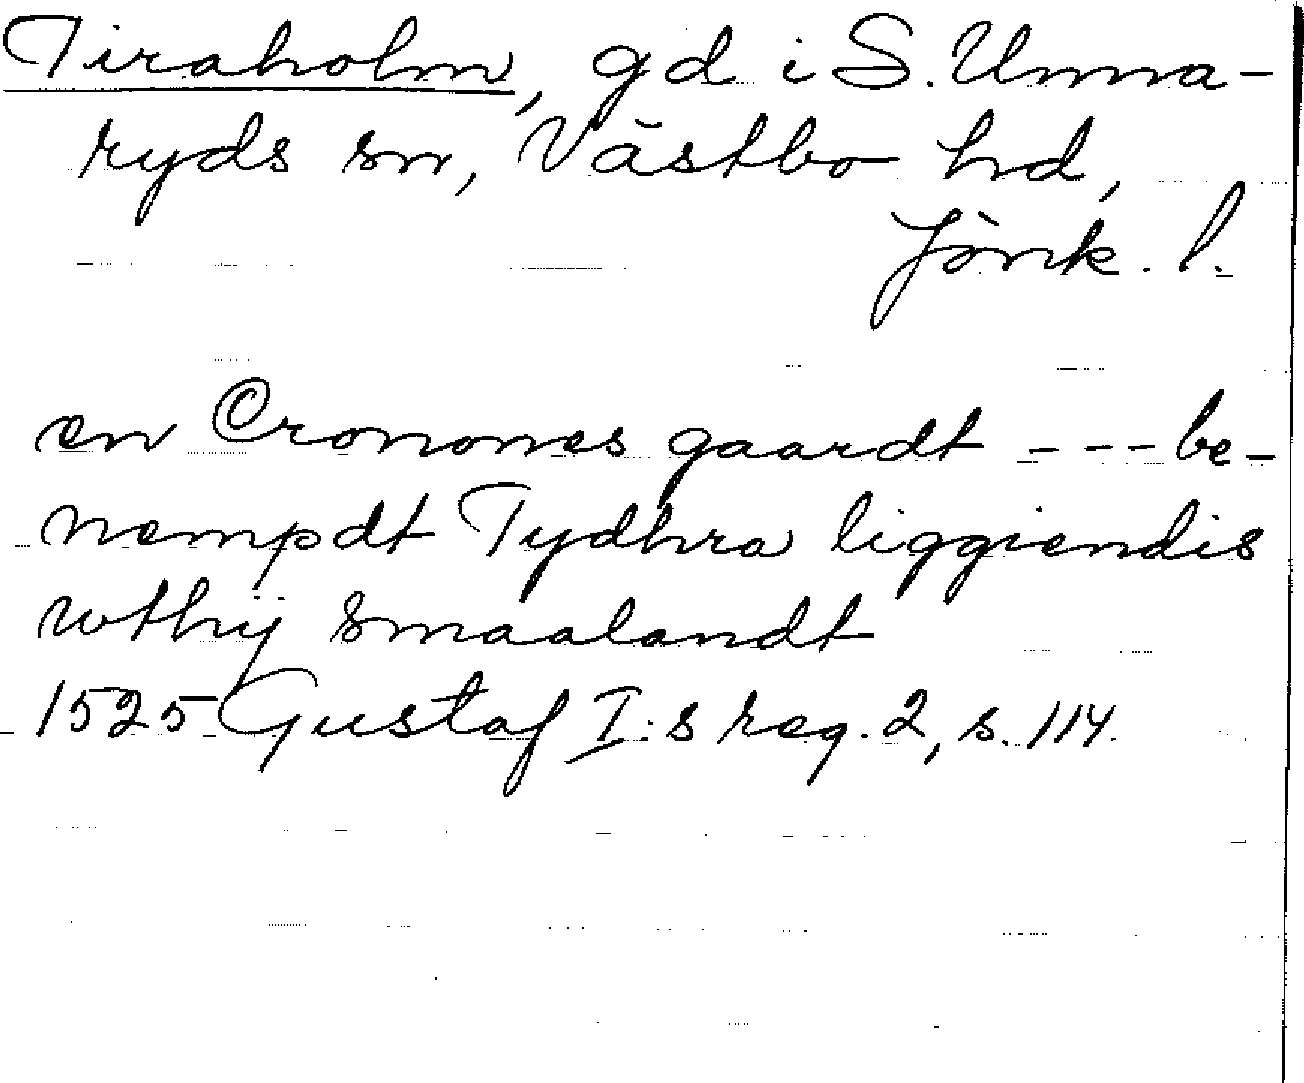 Tiraholm, gd i S. Unna-
ryds sn, Västbo hd,
Jönk. l.
en Cronones gaardt --- be-
nempdt Tydhra liggiendis
wthij Smaalandt
1525 Gustaf I:s reg. 2, s. 114.